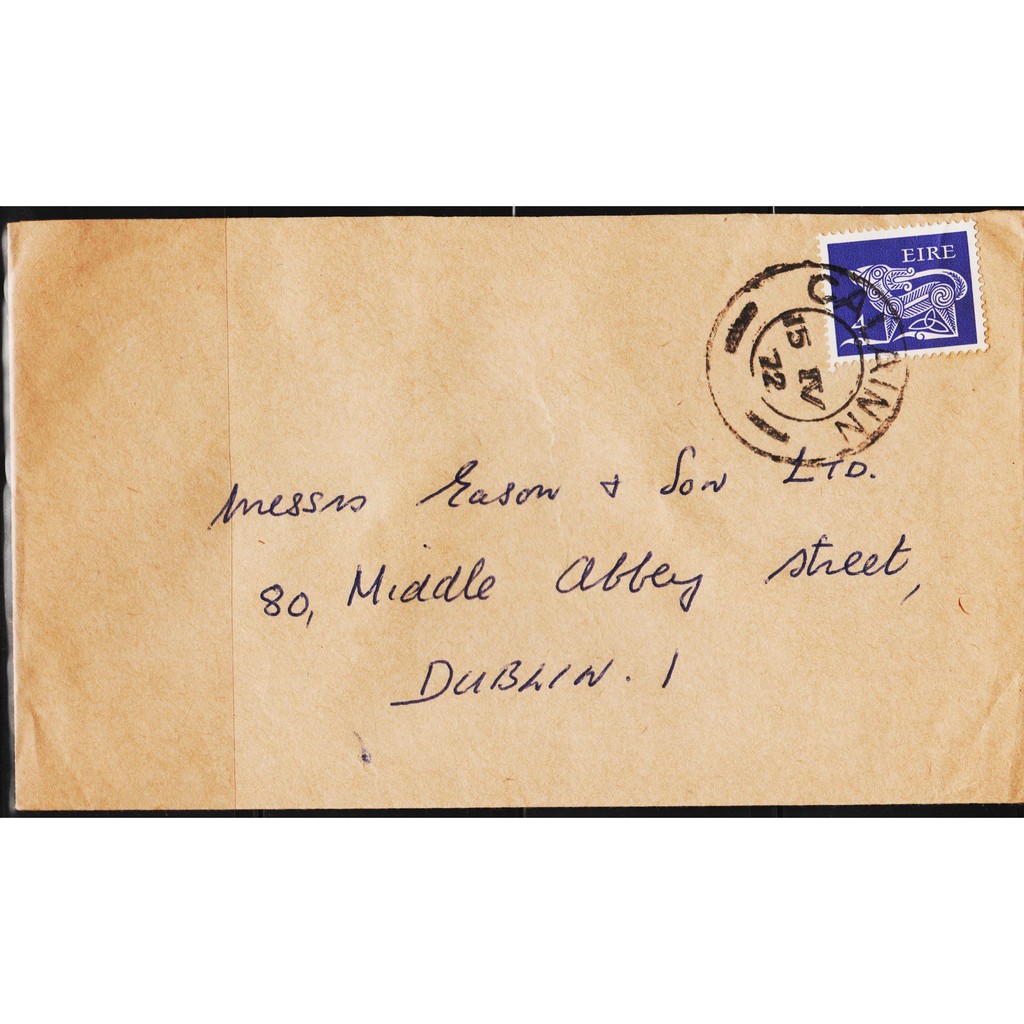 EIRE
4
CALAINN
15 IV
72
Messrs Eason & Son LTD.
80, Middle Abbey Street,
DUBLIN. 1